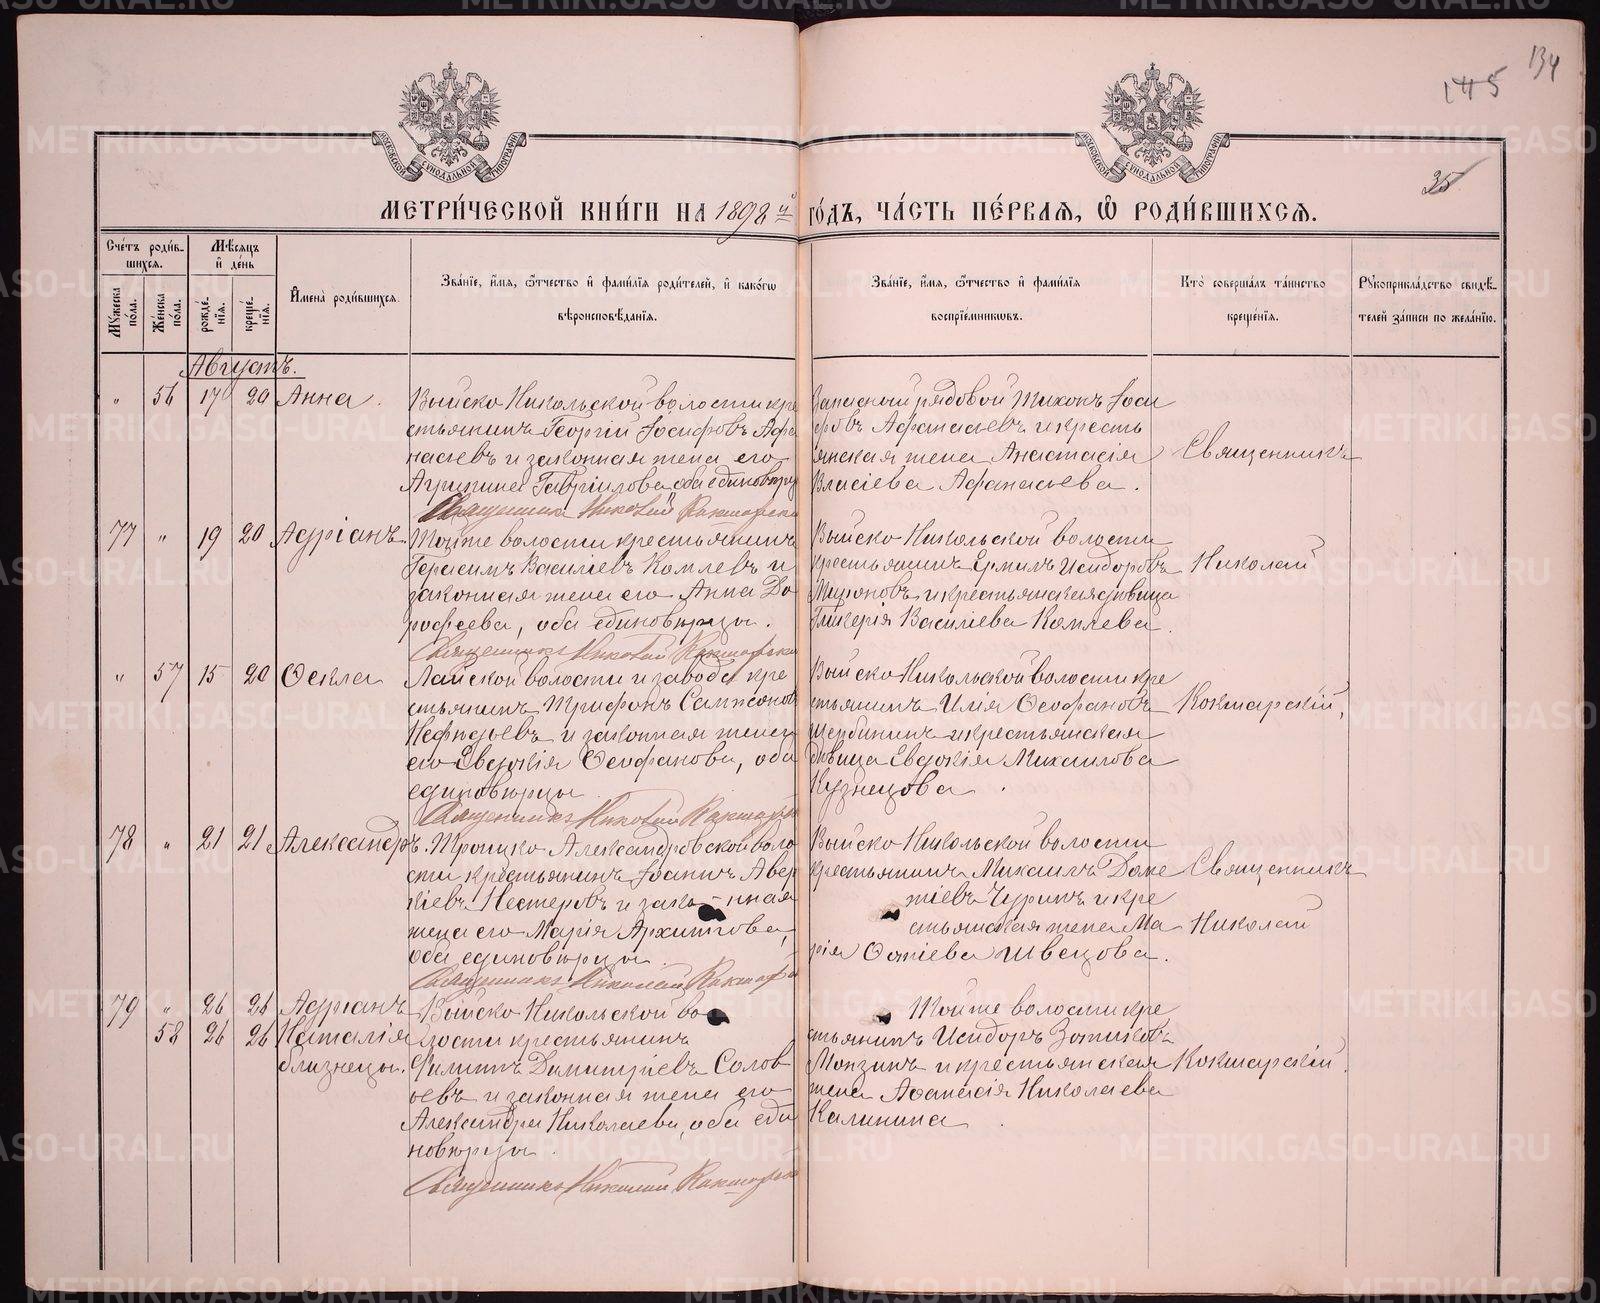 134
145
35
МОСКОВСКОЙ СѴНОДАЛЬНОЙ ТИПОГРАФІИ
МОСКОВСКОЙ СѴНОДАЛЬНОЙ ТИПОГРАФІИ
МЕТРИ́ЧЕСКОЙ КНИ́ГИ НА 1892й ГО́ДЪ, ЧА́СТЬ ПЕ́РВАЯ, Ѡ РОДИ́ВШИХСЯ.
Счетъ роди́вшихся.
Мѣсяцъ и де́нь
Мужеска по́ла.
Же́нска по́ла.
рожде́нія.
креще́нія.
Имена̀ роди́вшихся.
Зва́ніе, и́мя, ѻ́тчество и фами́лія роди́телей, и како́гѡ вѣроисповѣ́данія.
Зва́ніе, и́мя, ѻ́тчество и фами́лія воспріе́мниковъ.
Кто̀ соверша́лъ та́инство креще́нія.
Рукоприкла́дство свидѣ́телей за́писи по жела́нію.
Августъ.
" 56 17 20 Анна.
Выйско Никольской волости кре
стьянинъ Георгій Іосифовъ Афа
насьевъ и законная жена его
Агрипина Гавріилова, оба единоверцы
Священникъ Николай Кокшарскій
Запасной рядовой Тихонъ Іоси
фовъ Афанасьевъ и кресть
янская жена Анастасія
Власіева Афанасьева.
Священникъ
77 " 19 20 Адріанъ
Тойже волости крестьянинъ
Герасимъ Василіевъ Комлевъ и
законная жена его Анна До
рофеева, оба единоверцы.
Священникъ Николай Кокшарскій
Выйско Никольской волости
крестьянинъ Ермилъ Исидоровъ
Мироновъ и крестьянская девица
Гликерія Василіева Комлева.
Николай
" 57 15 20 Ѳекла
Лайской волости и завода кре
стьянинъ Трифонъ Сампсоновъ
Нефедьевъ и законная жена
его Евдокія Ѳеофанова, оба
единоверцы.
Священникъ Николай Кокшарскій
Выйско Никольской волости кре
стьянинъ Илія Ѳеофановъ
Щербининъ и крестьянская
девица Евдокія Михаилова
Кузнецова.
Кокшарскій,
78 " 21 21 Александръ.
Троицко Александровской воло
сти крестьянинъ Іоаннъ Авер
кіевъ Нестеровъ и законная
жена его Марія Архиппова,
оба единоверцы.
Священникъ Николай Кокшарскій
Выйско Никольской волости
крестьянинъ Михаилъ Доме
тіевъ Чуринъ и кре
стьянская жена Ма
рія Фотіева Швецова.
Священникъ
Николай
79 " 26 26 Адріанъ
58 26 26 Наталія
близнецы.
Выйско Никольской во
лости крестьянинъ
Филиппъ Димитріевъ Солов
ьевъ и законная жена его
Александра Николаева, оба еди
новерцы.
Священникъ Николай Кокшарскій
Тойже волости кре
стьянинъ Исидоръ Зотиковъ
Монзинъ и крестьянская
жена Афанасія Николаева
Калинина.
Кокшарскій.